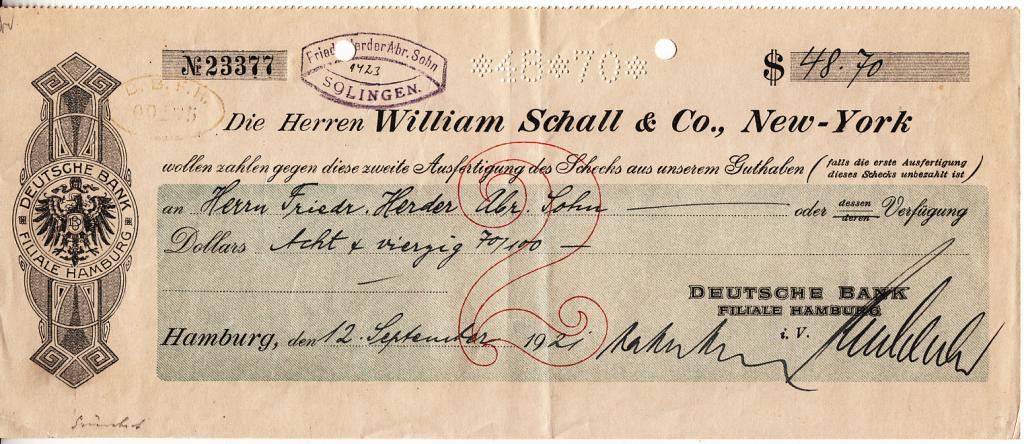 №23377
Fried. Herder Abr. Sohn
1423
SOLINGEN.
*48*70*
$ 48.70
Die Herren William Schall & Co., New-York
wollen zahlen gegen diese zweite Ausfertigung des Schecks aus unserem Guthaben (falls die erste Ausfertigung dieses Schecks unbezahlt ist)
2
an Herrn Friedr. Herder Abr. Sohn oder dessen deren Verfügung
Dollars Acht & vierzig 70/100
DEUTSCHE BANK
FILIALE HAMBURG
i. V.
Hamburg, den 12. September 1921
DEUTSCHE BANK
FILIALE HAMBURG